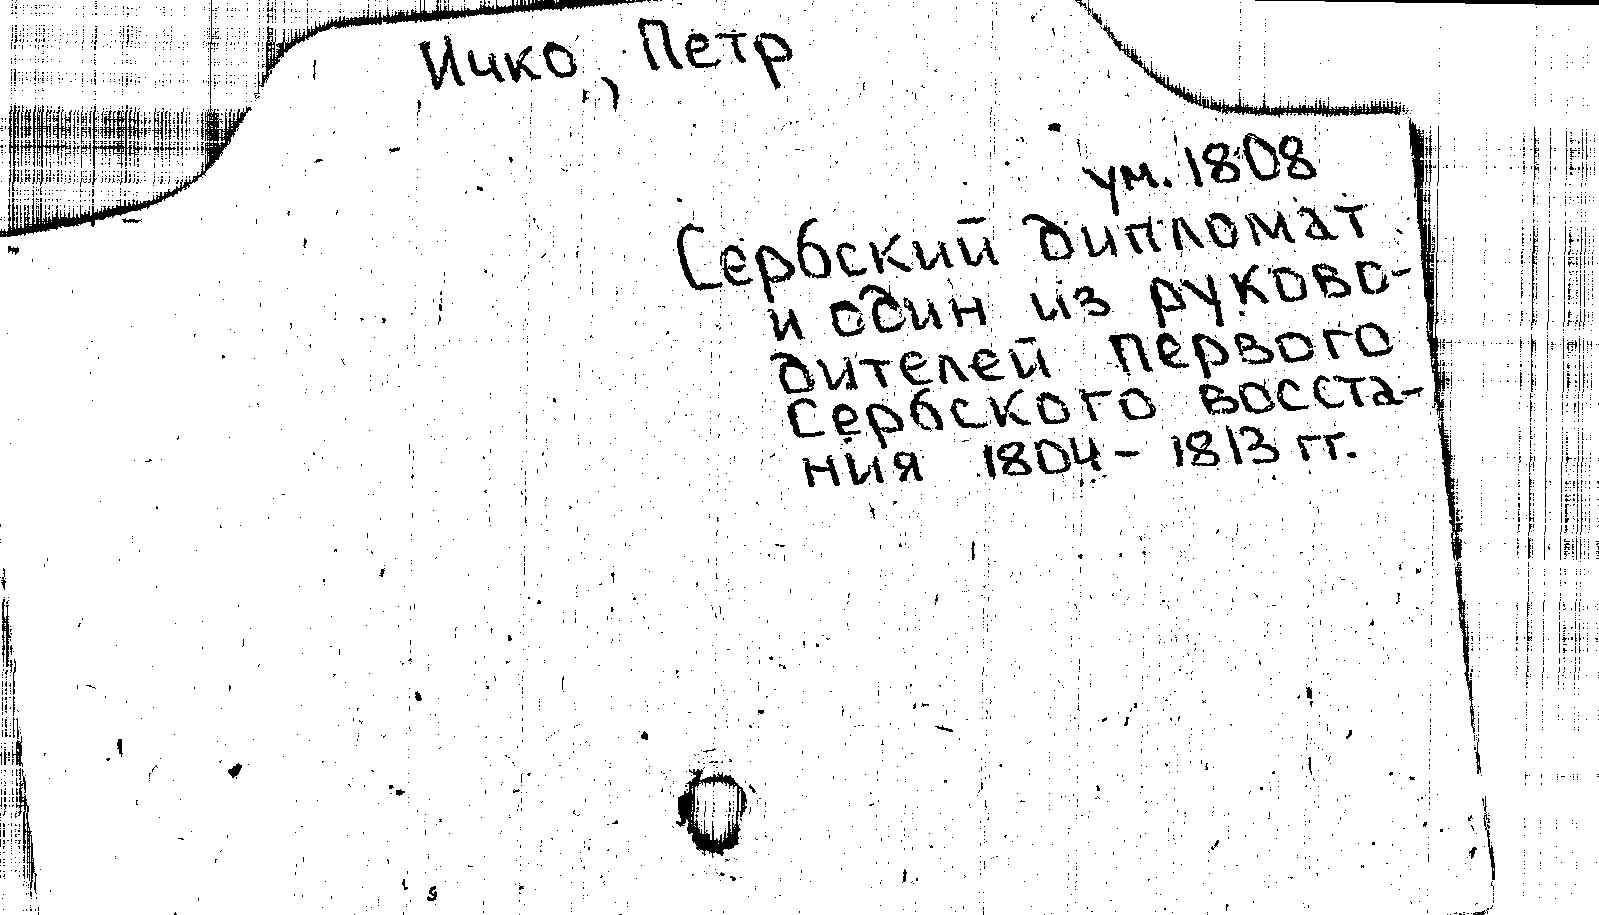 Ичко, Петр
ум. 1808
Сербский дипломат
и один из руково-
дителей Первого
Сербского восста-
ния 1804-1813 гг.